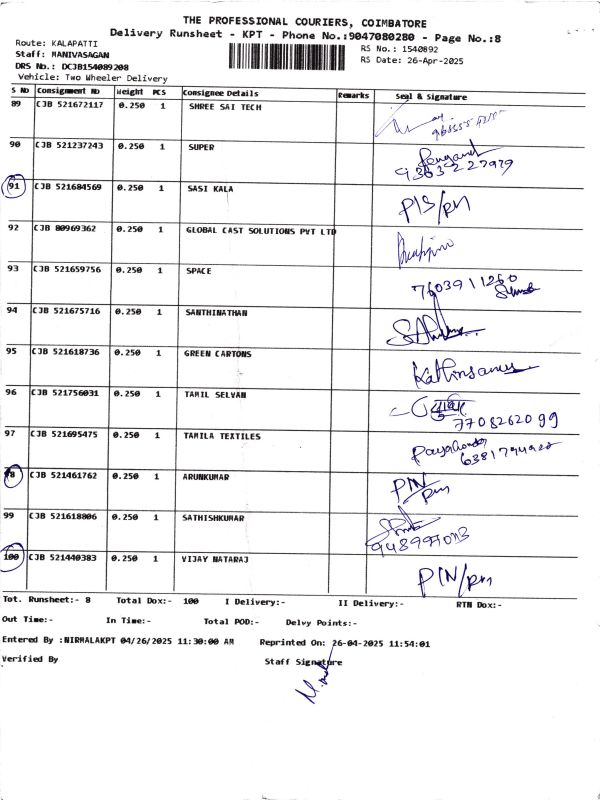 THE PROFESSIONAL COURIERS, COIMBATORE
Delivery Runsheet - KPT - Phone No.:9047080280 - Page No.:8
Route: KALAPATTI
Staff: MANIVASAGAN
DRS No.: DCJB154089208
Vehicle: Two Wheeler Delivery
RS No.: 1540892
RS Date: 26-Apr-2025
S No Consignment No Weight PCS Consignee Details Remarks Seal & Signature
89 CJB 521672117 0.250 1 SHREE SAI TECH
90 CJB 521237243 0.250 1 SUPER
9363227979
91 CJB 521684569 0.250 1 SASI KALA
PIS/pn
92 CJB 80969362 0.250 1 GLOBAL CAST SOLUTIONS PVT LTD
93 CJB 521659756 0.250 1 SPACE
7603911260
94 CJB 521675716 0.250 1 SANTHINATHAN
95 CJB 521618736 0.250 1 GREEN CARTONS
96 CJB 521756031 0.250 1 TAMIL SELVAN
7708262099
97 CJB 521695475 0.250 1 TAMILA TEXTILES
98 CJB 521461762 0.250 1 ARUNKUMAR
PIN/pm
99 CJB 521618806 0.250 1 SATHISHKUMAR
100 CJB 521440383 0.250 1 VIJAY NATARAJ
PIN/pm
Tot. Runsheet:- 8 Total Dox:- 100 I Delivery:- II Delivery:- RTN Dox:-
Out Time:- In Time:- Total POD:- Delvy Points:-
Entered By :NIRMALAKPT 04/26/2025 11:30:00 AM Reprinted On: 26-04-2025 11:54:01
Verified By Staff Signature